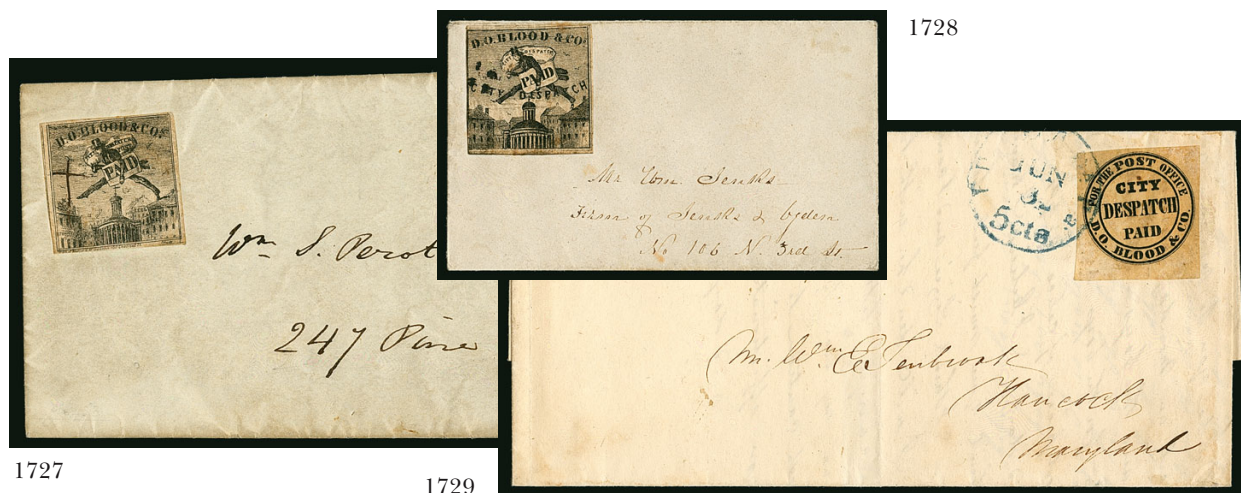 1728
D.O. BLOOD & COS
CITY DESPATCH
PAID
CITY DESPATCH
Mr Wm. Jenks
Firm of Jenks & Ogden
No 106 N. 3rd St.
D.O. BLOOD & COS
PAID
Wm S. Perot
247 Pine
JUN
5cts
FOR THE POST OFFICE
CITY
DESPATCH
PAID
D.O. BLOOD & CO.
Mr. Wm. E. Tenbrook
Hancock
Maryland
1727
1729